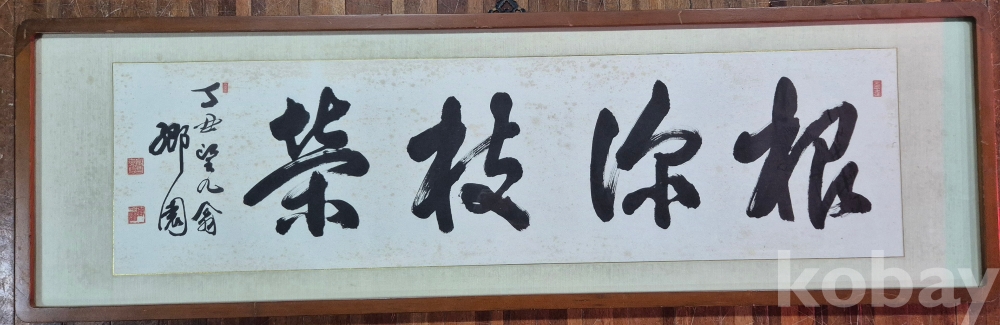 根深枝榮
丁丑望九翁
鄉園
kobay